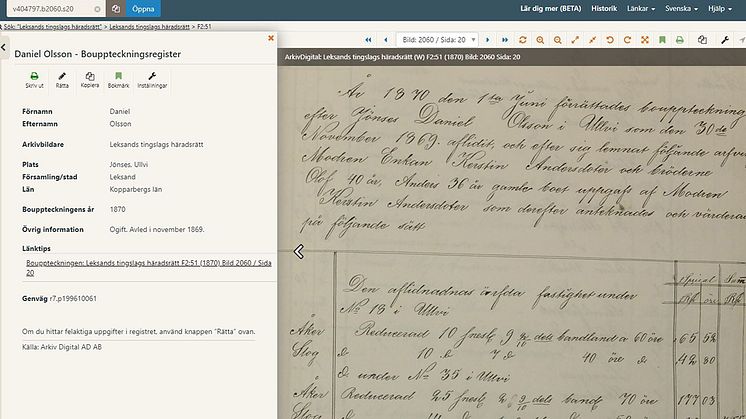 v404797.b2060.s20
Öppna
Lär dig mer (BETA) Historik Länkar Svenska Hjälp
Sök: "Leksands tingslags häradsrätt" > Leksands tingslags häradsrätt > F2:51
Bild: 2060 / Sida: 20
Daniel Olsson - Bouppteckningsregister
Skriv ut Rätta Kopiera Bokmärk Inställningar
Förnamn Daniel
Efternamn Olsson
Arkivbildare Leksands tingslags häradsrätt
Plats Jönses, Ullvi
Församling/stad Leksand
Län Kopparbergs län
Bouppteckningens år 1870
Övrig information Ogift. Avled i november 1869.
Länktips
Bouppteckningen: Leksands tingslags häradsrätt F2:51 (1870) Bild 2060 / Sida
20
Genväg r7.p199610061
Om du hittar felaktiga uppgifter i registret, använd knappen "Rätta" ovan.
Källa: Arkiv Digital AD AB
ArkivDigital: Leksands tingslags häradsrätt (W) F2:51 (1870) Bild: 2060 Sida: 20
År 1870 den 1sta Juni förrättades bouppteckning
efter Jönses Daniel Olsson i Ullvi som den 30de
November 1869. aflidit, och efter sig lemnat följande arfva
Modren Enkan Kerstin Andersdoter och bröderne
Olof 40 år, Anders 36 år gamle boet uppgafs af Modren
Kerstin Andersdoter som derefter anteknades och värderad
på följande sätt
Special Sum
Den aflidnadnas ärfda fastighet under
Rdr öre Rdr
No 13 i Ullvi
Åker Reducerad 10 snesl. 9 2/10 dels bandland a 60 öre 65 52
Slog d: 10 d: 7 d: 40 öre d: 42 80
d: under No 35 i Ullvi
Åker Reducerad 25 snesl. 2 9/10 dels bandl 70 öre 177 03